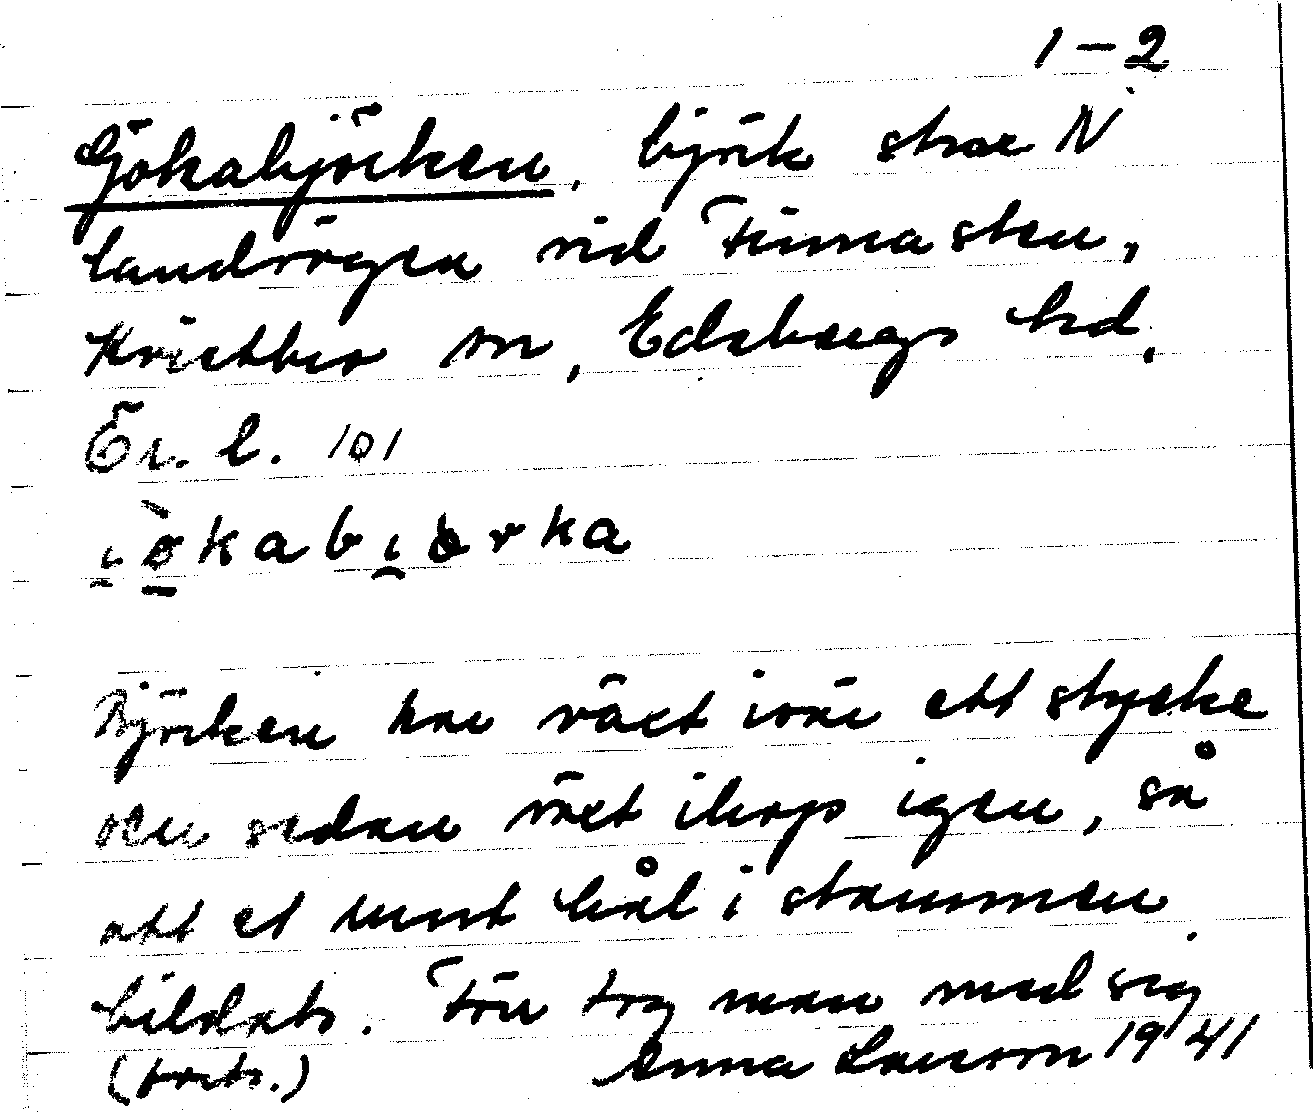 1-2
Gökabjörken, björk strax N
landsvägen vid Finnasten,
Kvistbro sn, Edsbergs hd,
Ör. l. 101
i̯ökabi̯örka
Björken har växt isär ett stycke
och sedan växt ihop igen, så
att et runt hål i stammen
bildats. Förr tog man med sig
(forts.) Anna Larsson 1941